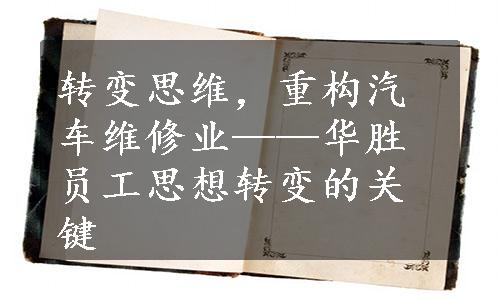 转变思维，重构汽
车维修业——华胜
员工思想转变的关
键